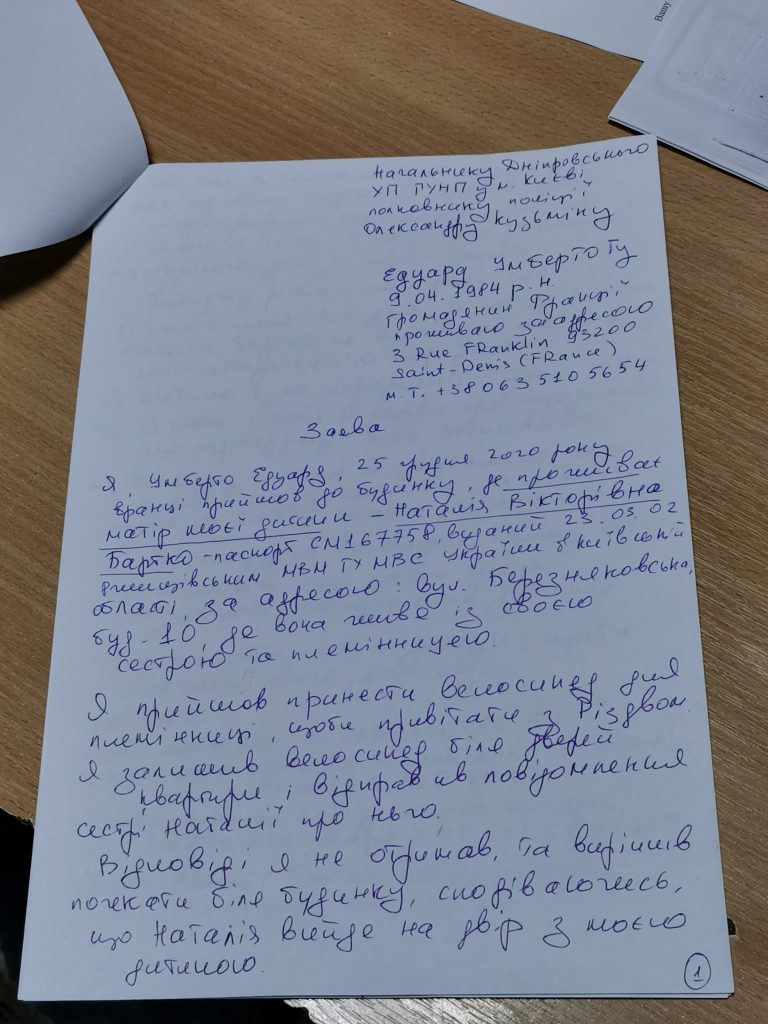 Вашу
Начальнику Дніпровського
УП ГУНП у м. Києві
полковнику поліції
Олександру Кузьміну
Едуард Умберто Гу
9.04.1984 р.н.
Громадянин Франції
проживаю за адресою
3 Rue FRanklin 93200
Saint-Denis (FRance)
м.т. +38 063 510 56 54
Заява
Я, Умберто Едуард, 25 грудня 2020 року
вранці прийшов до будинку, де проживає
матір моєї дитини - Наталія Вікторівна
Бартко - паспорт СМ167758, виданий 23.03.02
МВМ ГУ МВС України в Київській
області, за адресою: вул. Березняковська,
буд-10, де вона живе із своєю
сестрою та племінницею.
Я прийшов принести велосипед для
племінниці, щоби привітати з Різдвом.
Я залишив велосипед біля дверей
квартири і відправив повідомлення
сестрі Наталії про нього.
Відповіді я не отримав, та вирішив
почекати біля будинку, сподіваючись,
що Наталія вийде на двір з моєю
дитиною.
1